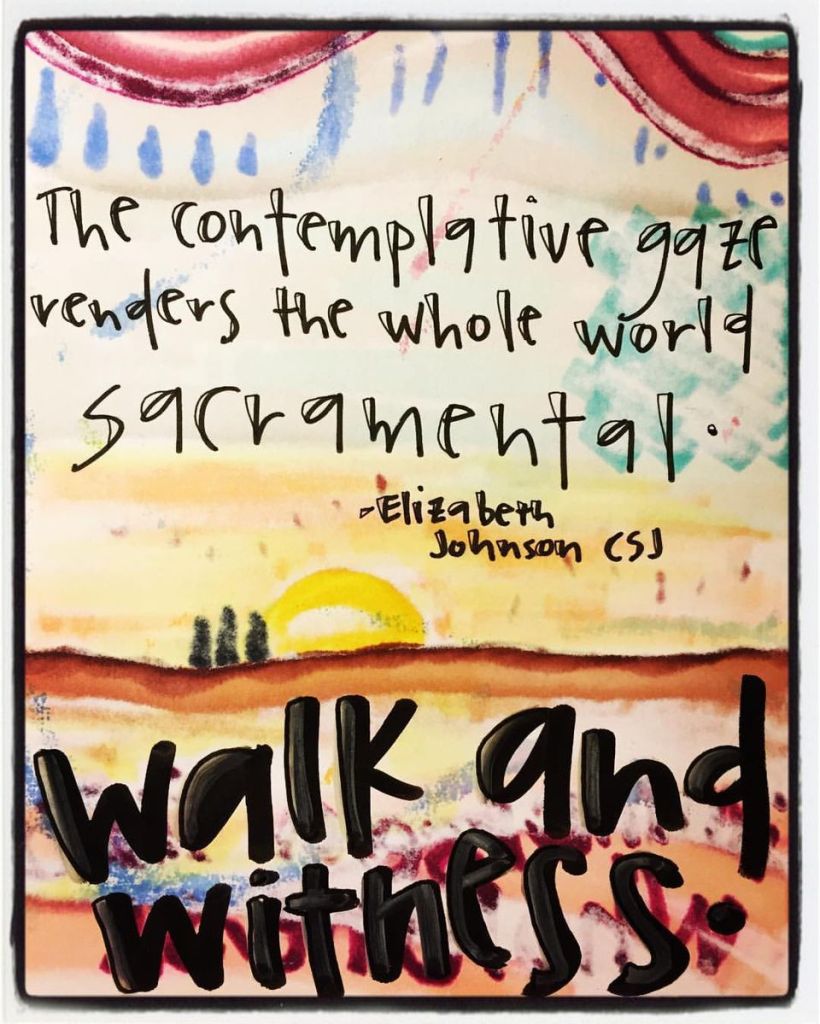 The contemplative gaze
renders the whole world
sacramental.
-Elizabeth
Johnson CSJ
walk and
witness.